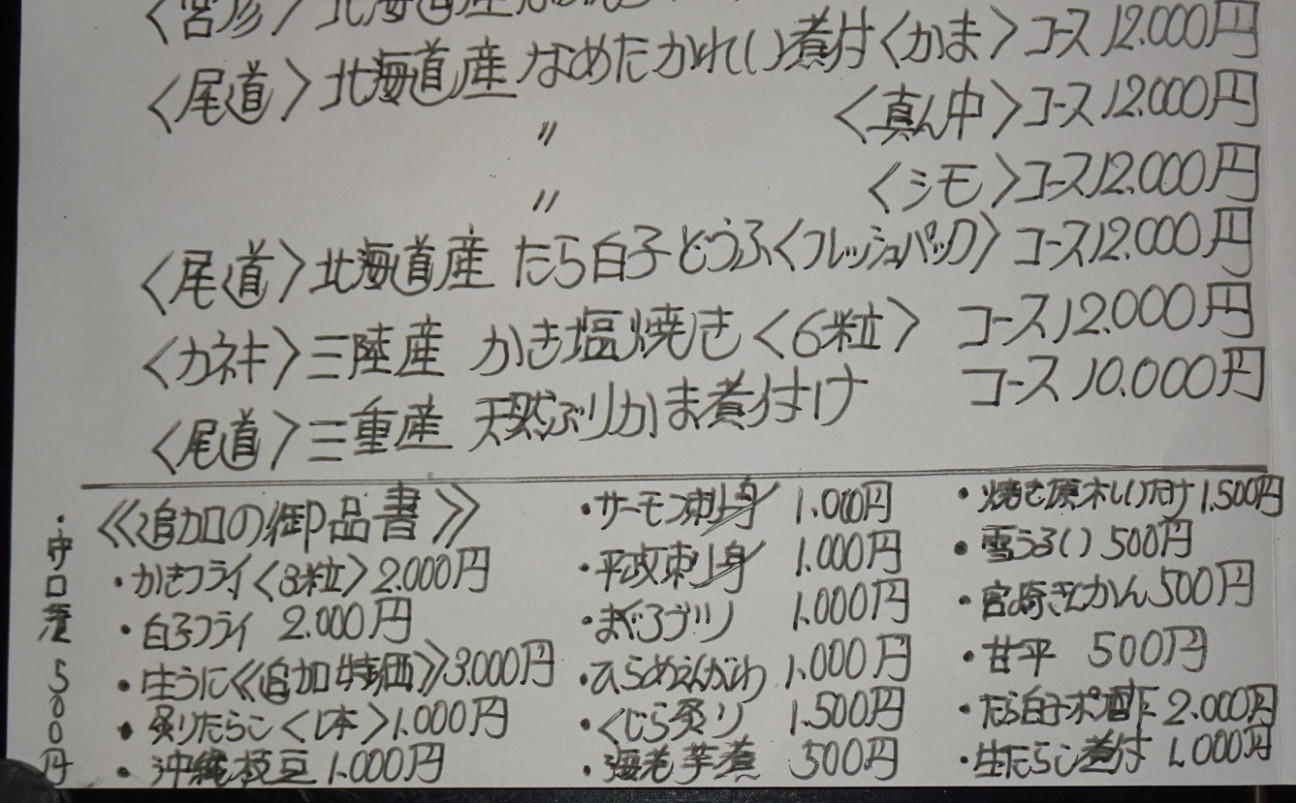 〈尾道〉北海道産 なめたかれい煮付〈かま〉コース12.000円
〃 〈真ん中〉コース12.000円
〃 〈シモ〉コース12.000円
〈尾道〉北海道産 たら白子どうふ〈フレッシュパック〉コース12.000円
〈カネキ〉三陸産 かき塩焼き〈6粒〉コース12.000円
〈尾道〉三重産 天然ぶりかま煮付け コース10.000円
《追加の御品書》
・かきフライ〈3粒〉2.000円
・白子フライ 2.000円
・生うに《追加特価》3.000円
・炙りたらこ〈1本〉1.000円
・沖縄枝豆 1.000円
・サーモン刺身 1.000円
・平政刺り身 1.000円
・まぐろブツ 1.000円
・ひらめえんがわ 1.000円
・くじら炙り 1.500円
・海老芋煮 500円
・焼き原木しいたけ 1.500円
・雪うるい 500円
・宮崎きんかん 500円
・甘平 500円
・たら白子ポン酢 2.000円
・生たらこ煮付 1.000円
・守口漬500円